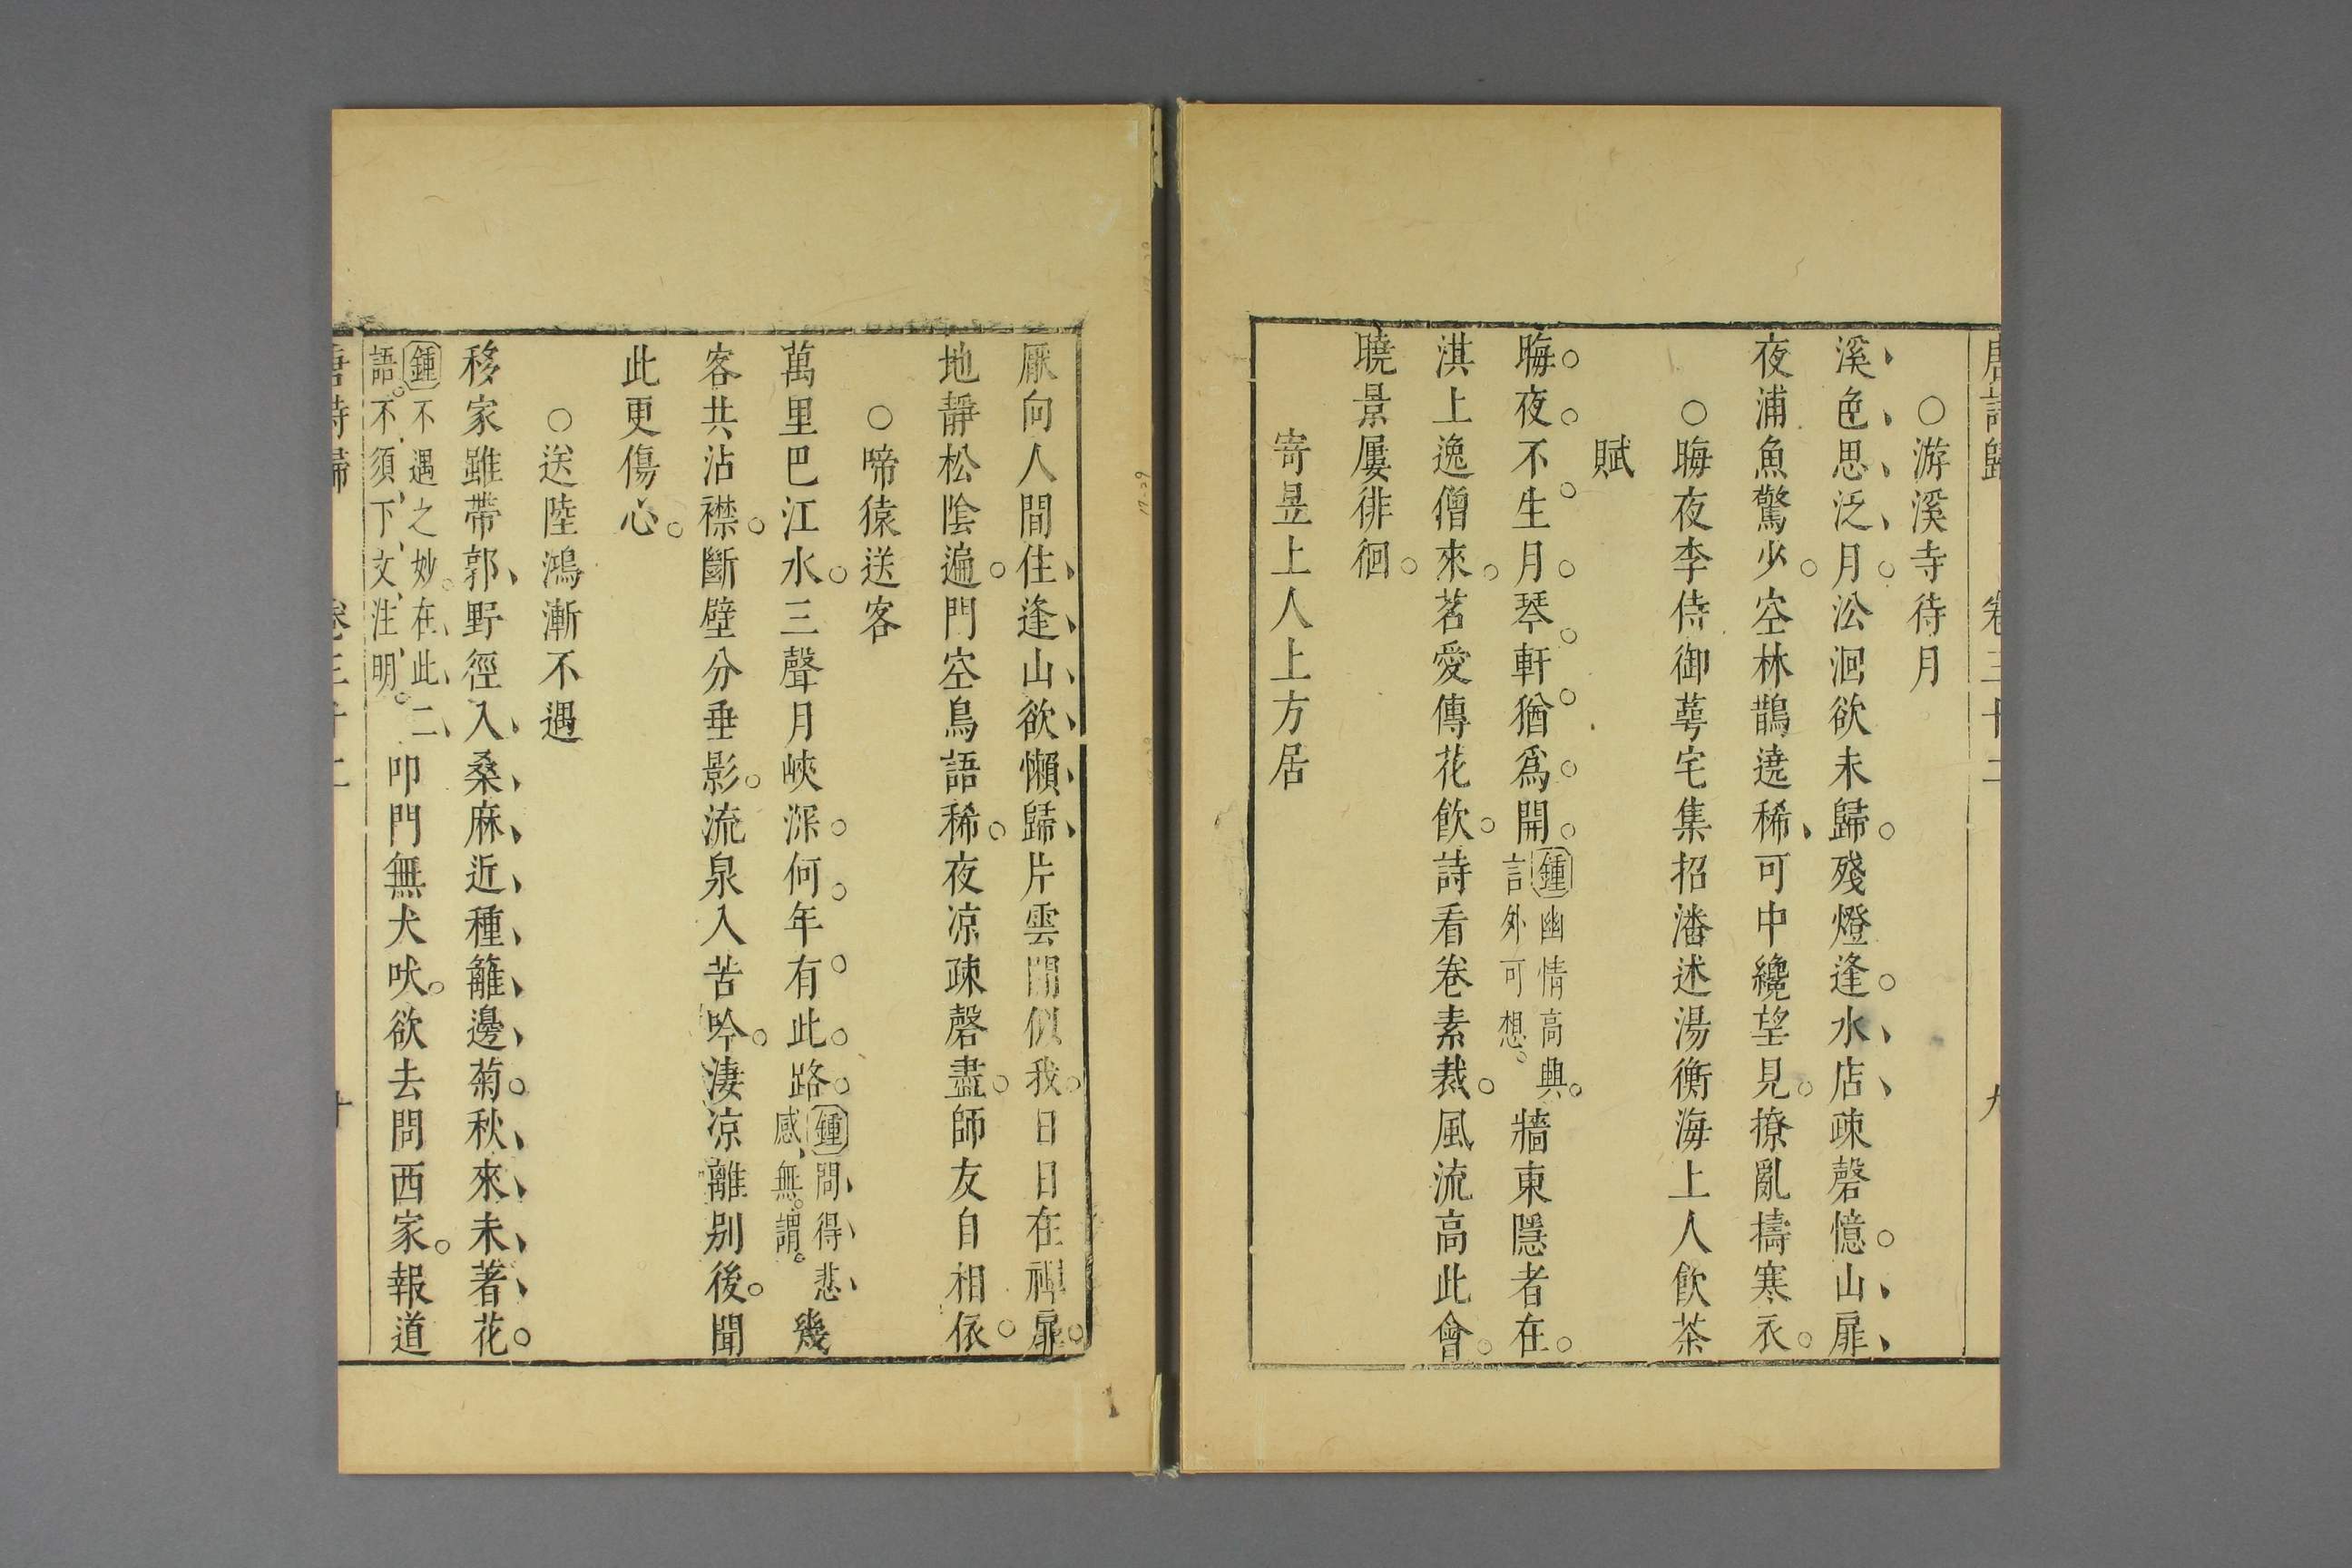 唐詩歸 卷三十二 九
○游溪寺待月
溪色思泛月沿洄欲未歸殘燈逢水店疎磬憶山扉
夜浦魚驚少空林鵲遶稀可中纔望見撩亂擣寒衣
○晦夜李侍御萼宅集招潘述湯衡海上人飲茶
賦
晦夜不生月琴軒猶爲開鍾幽情高興言外可想牆東隱者在
淇上逸僧來茗愛傳花飲詩看卷素裁風流高此會
曉景屢徘徊
寄昱上人上方居
厭向人間住逢山欲懶歸片雲閒似我日日在禪扉
地靜松陰遍門空鳥語稀夜凉疎磬盡師友自相依
○啼猿送客
萬里巴江水三聲月峽深何年有此路鍾問得悲感無謂幾
客共沾襟斷壁分垂影流泉入苦吟淒凉離别後聞
此更傷心
○送陸鴻漸不遇
移家雖帶郭野徑入桑麻近種籬邊菊秋來未著花
鍾不遇之妙在此二語不須下文注明叩門無犬吠欲去問西家報道
唐詩歸 卷三十二 十